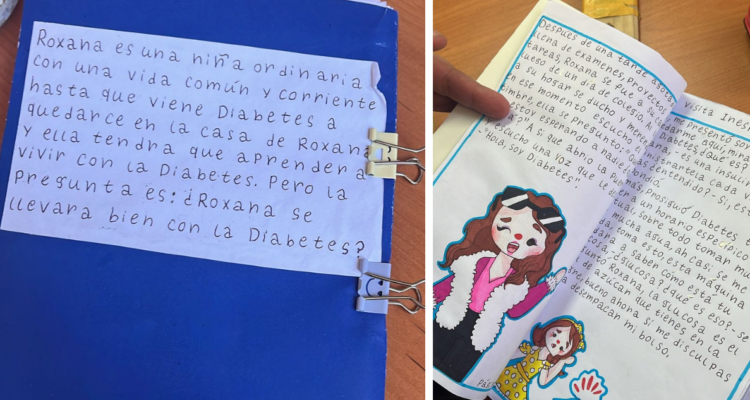 Roxana es una niña ordinaria
con una vida común y corriente
hasta que viene Diabetes a
quedarce en la casa de Roxana
y ella tendra que aprender a
vivir con la Diabetes. Pero la
Pregunta es: ¿Roxana se
llevara bien con la Diabetes?
Después de una tarde
llena de examenes, Proyectos,
tareas, Roxana se fue a su
de un dia de colegio,
a su hogar se ducho y
en ese momento escucho
timbre, ella se pregunto:
estoy esperando a nadie
A si que abrio la Puerta
escucho una voz que le
-"Hola, soy Diabetes".
visita
me presento soy
aquí, mira
Diabetes ¿que es?
es una insulina
cada
entendido? - Si, es
Prosiguió Diabetes
un horario especifico
sobre todo tomar
mucha agua, ah casi se me
toma esto esta maquina
a saber como esta tu
¿Glucosa? ¿que es eso? - se
Roxana, la glucosa es el
de azucar que tienes en la
bueno ahora si me disculpas
a desempacar mi bolso.